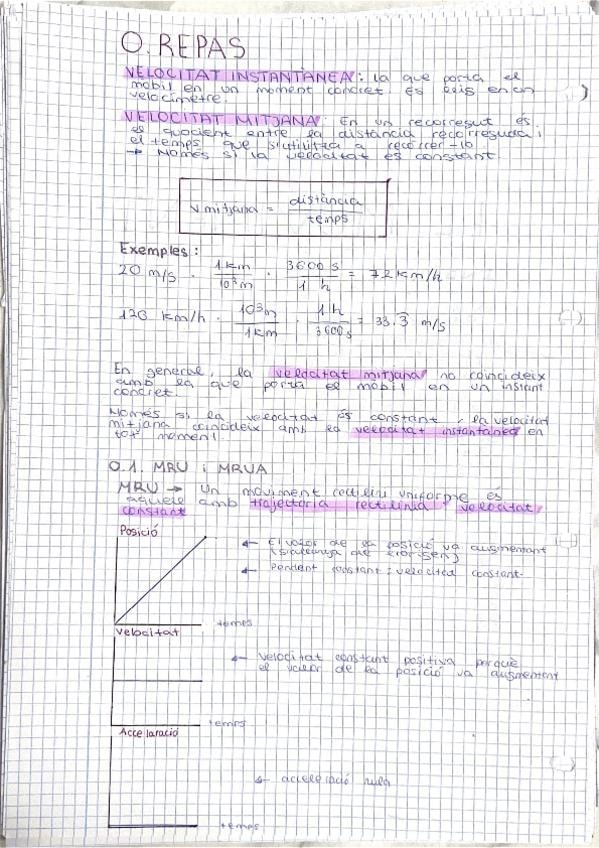 0. REPAS
VELOCITAT INSTANTÀNEA: la que porta el
mòbil en un moment concret. Es llegeix en un
velocímetre.
VELOCITAT MITJANA: En un recorregut és
el quocient entre la distància recorreguda i
el temps que s'utilitza a recórrer-lo
→ Només si la velocitat és constant
Vmitjana = distància / temps
Exemples:
20 m/s · 1 km / 10³ m · 3600 s / 1 h = 72 km/h
120 km/h · 10³ m / 1 km · 1 h / 3600 s = 33.3 m/s
En general, la velocitat mitjana no coincideix
amb la que porta el mòbil en un instant
concret.
Només si la velocitat és constant, la velocitat
mitjana coincideix amb la velocitat instantànea en
tot moment.
0.1. MRU i MRUA
MRU → Un moviment rectilini uniforme és
aquell amb trajectòria rectilínia i velocitat
constant
Posició
← El valor de la posició va augmentant
← Pendent constant: velocitat constant.
temps
Velocitat
← Velocitat constant positiva perquè
el valor de la posició va augmentant
temps
Accelaració
← acceleració nula
temps